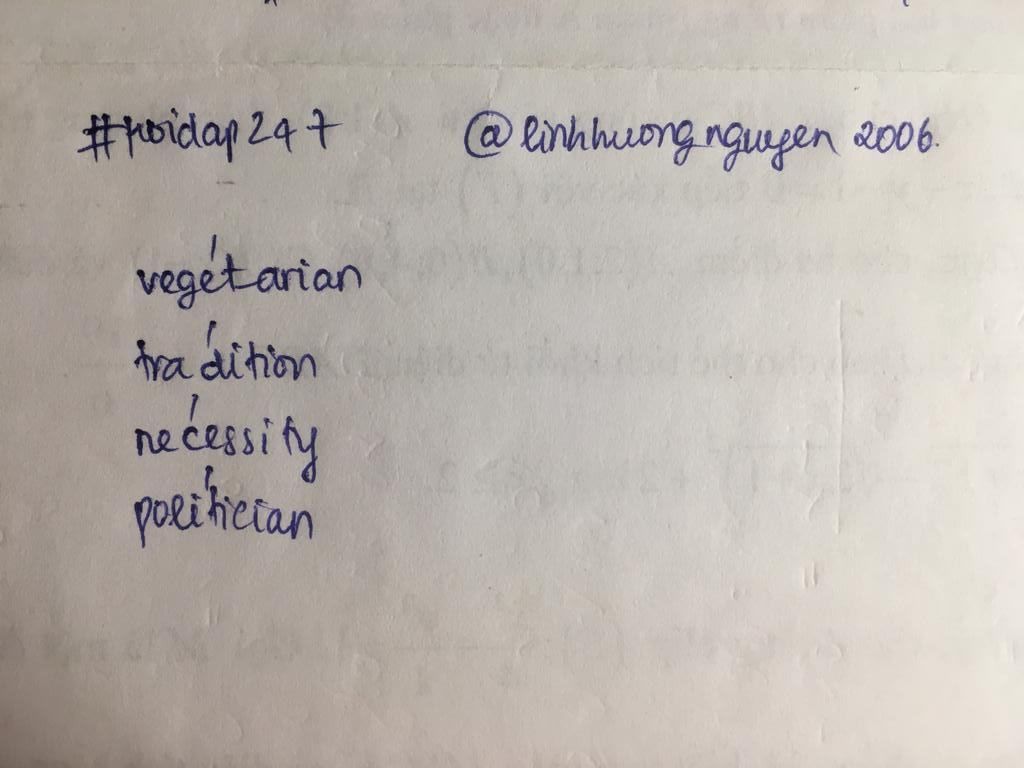 #hoidap247 @linhhuongnguyen2006.
vege'tarian
tra'dition
ne'cessity
poli'tician